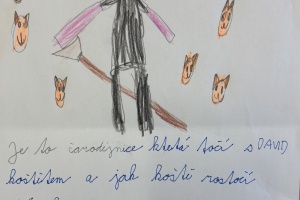 Je to čarodějnice ktetá točí s DAVID
koštětem a jak koště roztočí